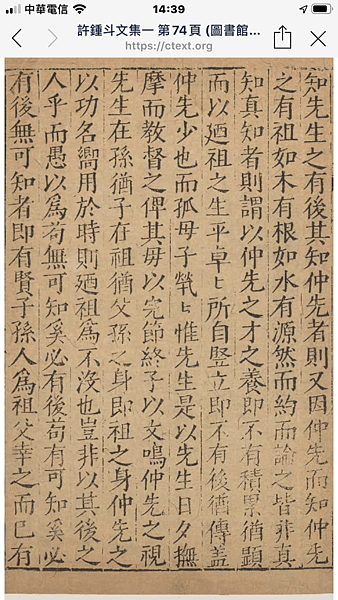 中華電信 14:39
許鍾斗文集一 第74頁 (圖書館...
https://ctext.org
知先生之有後其知仲先者則又因仲先而知仲先
之有祖如木有根如水有源然而約而論之皆非真
知真知者則謂以仲先之才之養即不有積累猶顯
而以廼祖之生平卓〻所自豎立即不有後猶傳蓋
仲先少也而孤母子煢〻惟先生是以先生日夕撫
摩而教督之俾其母以完節終子以文鳴仲先之視
先生在孫猶子在祖猶父孫之身即祖之身仲先之
以功名嚮用於時則廼祖爲不沒也豈非以其後之
人乎而愚以爲苟無可知奚必有後苟有可知奚必
有後無可知者即有賢子孫人爲祖父幸之而已有